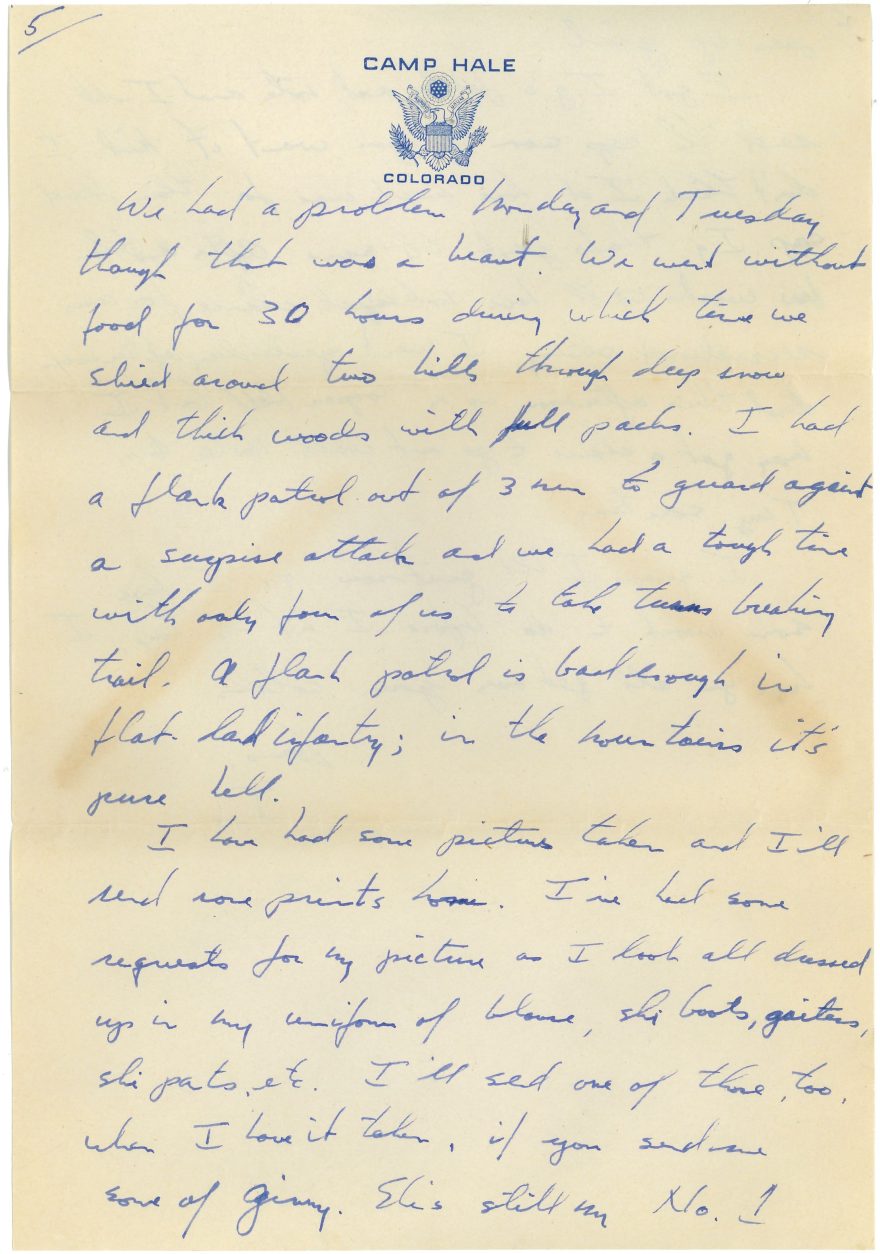 5
CAMP HALE
COLORADO
We had a problem Monday and Tuesday
though that was a beaut. We went without
food for 30 hours during which time we
skied around two hills through deep snow
and thick woods with full packs. I had
a flank patrol out of 3 men to guard against
a surprise attack and we had a tough time
with only four of us to take turns breaking
trail. A flank patrol is bad enough in
flat-land infantry; in the mountains it's
pure hell.
I have had some pictures taken and I'll
send some prints home. I've had some
requests for my picture as I look all dressed
up in my uniform of blouse, ski boots, gaiters,
ski pants, etc. I'll send one of those, too,
when I have it taken, if you send me
some of Ginny. She's still my No. 1